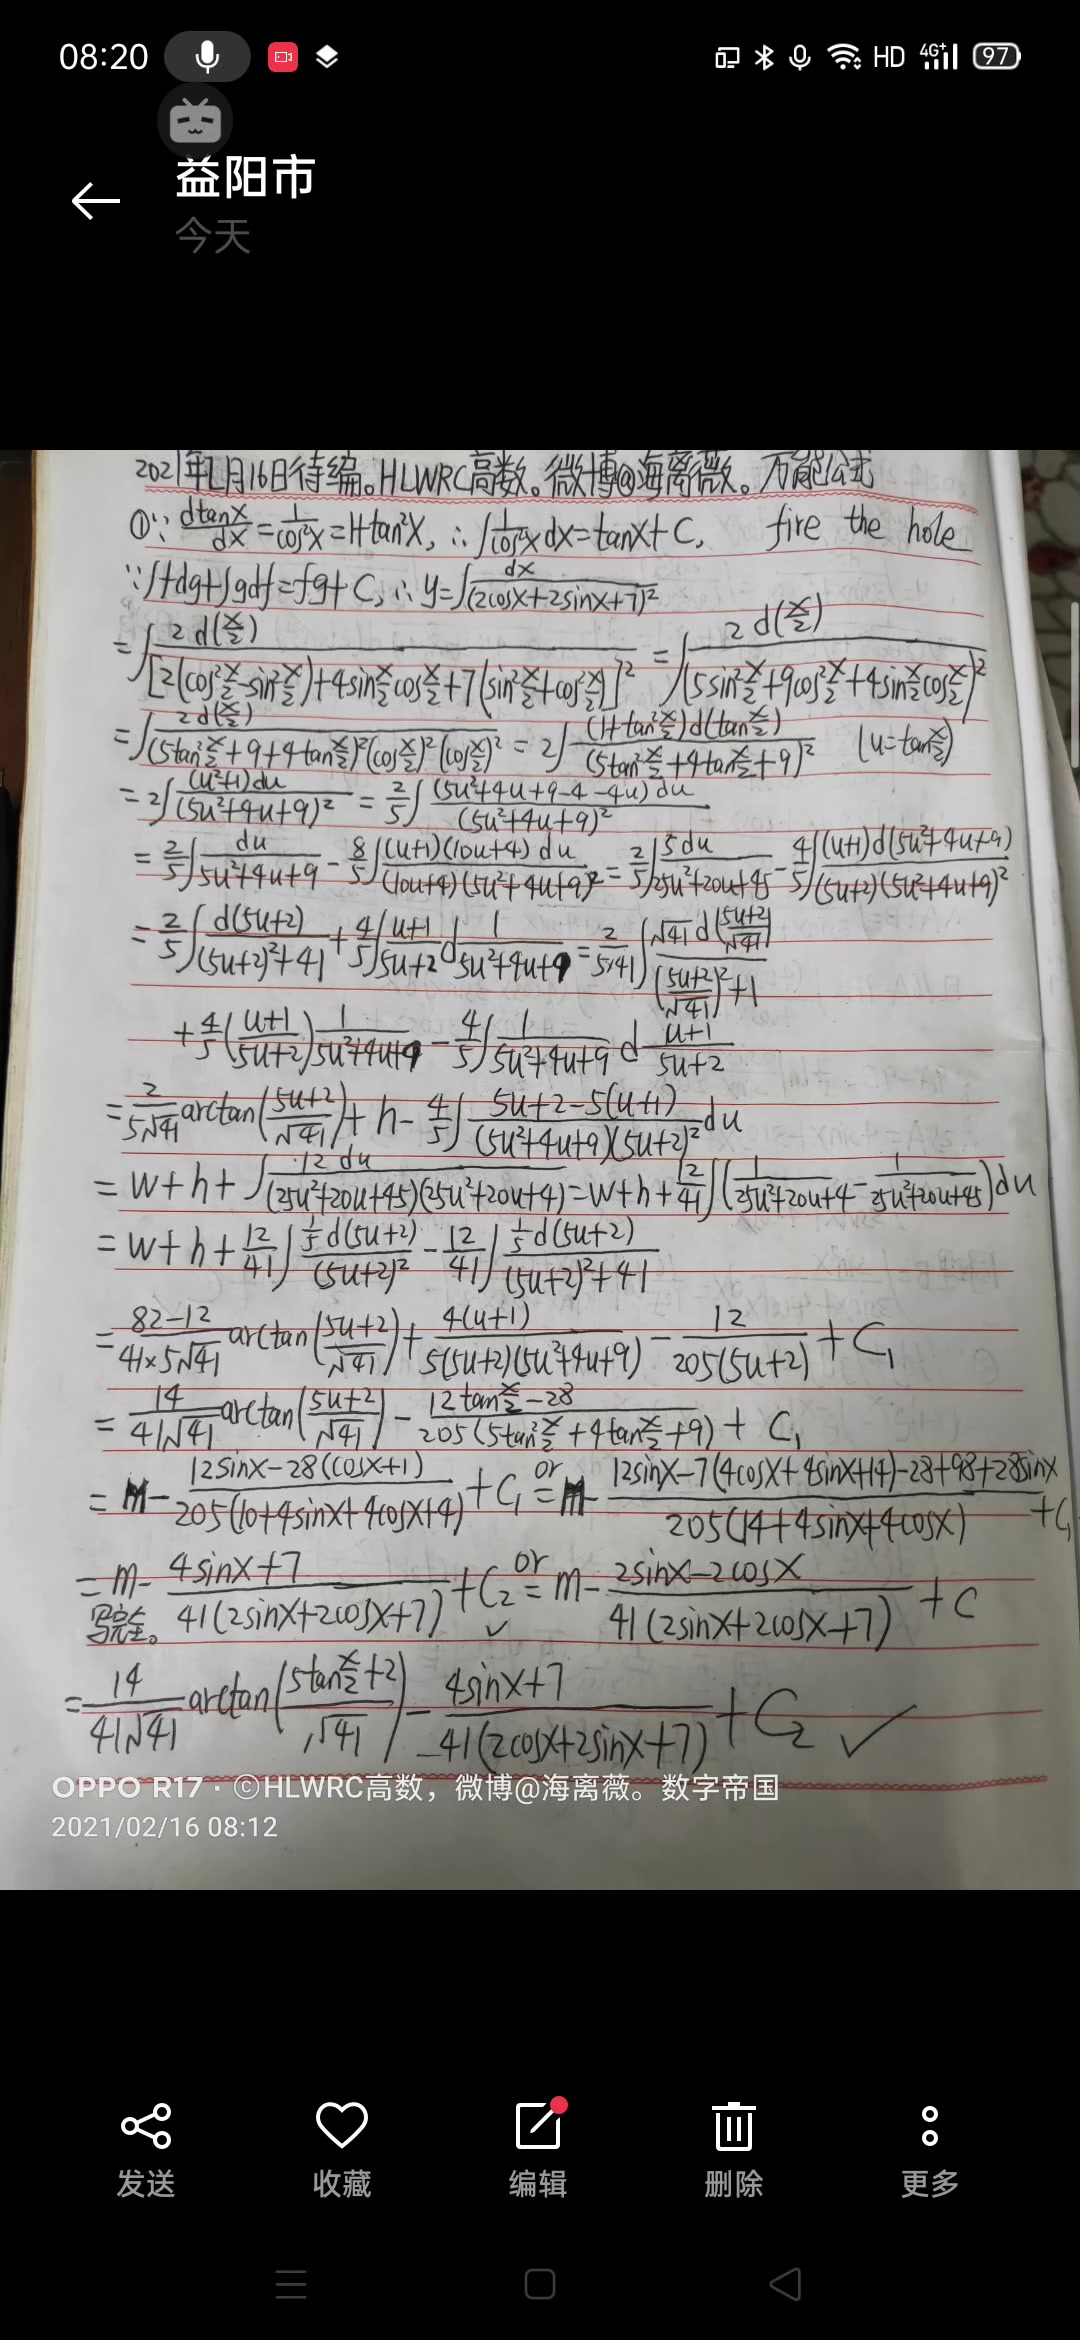 08:20
HD 4G+ 97
益阳市
今天
2021年1月16日待编。HLWRC高数。微博@海离薇。万能公式
①∵ dtanx/dx = 1/cos²x = 1+tan²x, ∴ ∫1/cos²x dx = tanx + C, fire the hole
∵ ∫fdg+∫gdf = fg + C, ∴ y = ∫dx/(2cosx+2sinx+7)²
= ∫2d(x/2)/[2(cos²x/2-sin²x/2)+4sinx/2cosx/2+7(sin²x/2+cos²x/2)]² = ∫2d(x/2)/(5sin²x/2+9cos²x/2+4sinx/2cosx/2)²
= ∫2d(x/2)/(5tan²x/2+9+4tanx/2)²(cosx/2)²(cosx/2)² = 2∫(1+tan²x/2)d(tanx/2)/(5tan²x/2+4tanx/2+9)² (u=tanx/2)
= 2∫(u²+1)du/(5u²+4u+9)² = 2/5∫(5u²+4u+9-4-4u)du/(5u²+4u+9)²
= 2/5∫du/(5u²+4u+9) - 8/5∫(u+1)(10u+4)du/(10u+4)(5u²+4u+9)² = 2/5∫5du/(25u²+20u+45) - 4/5∫(u+1)d(5u²+4u+9)/(5u+2)(5u²+4u+9)²
= 2/5∫d(5u+2)/((5u+2)²+41) + 4/5∫(u+1)/(5u+2) d 1/(5u²+4u+9) = 2/(5×41)∫√41 d((5u+2)/√41)/(((5u+2)/√41)²+1)
+ 4/5((u+1)/(5u+2)) 1/(5u²+4u+9) - 4/5∫1/(5u²+4u+9) d (u+1)/(5u+2)
= 2/(5√41) arctan((5u+2)/√41) + h - 4/5∫(5u+2-5(u+1))/((5u²+4u+9)(5u+2)²) du
= w+h+∫12du/((25u²+20u+45)(25u²+20u+4)) = w+h+12/41∫(1/(25u²+20u+4) - 1/(25u²+20u+45))du
= w+h+12/41∫(1/5)d(5u+2)/(5u+2)² - 12/41∫(1/5)d(5u+2)/((5u+2)²+41)
= (82-12)/(41×5√41) arctan((5u+2)/√41) + 4(u+1)/(5(5u+2)(5u²+4u+9)) - 12/(205(5u+2)) + C₁
= 14/(41√41) arctan((5u+2)/√41) - (12tanx/2-28)/(205(5tan²x/2+4tanx/2+9)) + C₁
= m - (12sinx-28(cosx+1))/(205(10+4sinx+4cosx+4)) + C₁ or= m - (12sinx-7(4cosx+4sinx+14)-28+98+28sinx)/(205(14+4sinx+4cosx)) + C₁
= m - (4sinx+7)/(41(2sinx+2cosx+7)) + C₂ or= m - (2sinx-2cosx)/(41(2sinx+2cosx+7)) + C
写完全。 ✓
= 14/(41√41) arctan((5tanx/2+2)/√41) - (4sinx+7)/(41(2cosx+2sinx+7)) + C₂ ✓
OPPO R17 · ©HLWRC高数，微博@海离薇。数字帝国
2021/02/16 08:12
发送 收藏 编辑 删除 更多